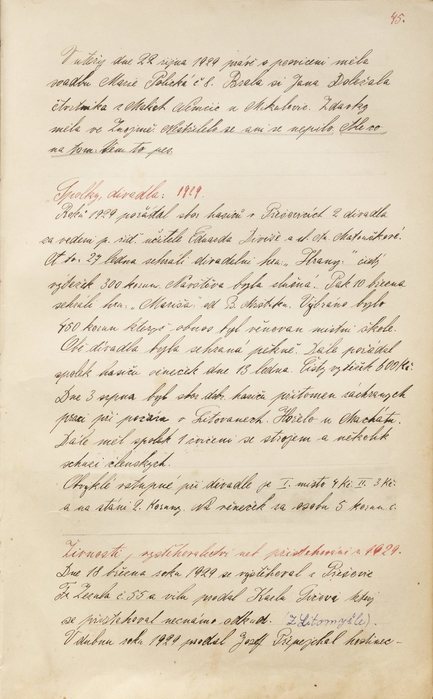 45.
V úterý dne 22 října 1929 právě o posvícení měla
svadbu Marie Polická č 8. Brala si Jana Doležala
čtvrtníka z Malých Němčic u Mikulovic. Zdavky
měla ve Znojmě
na tom není to pes.
Spolky, divadla: 1929.
Roku 1929 pořádal sbor hasičů v Přešovicích 2 divadla
za vedení p. říd. učitele Eduarda Diviše a
At to: 27 ledna sehráli divadelní hru „Hrany“ čistý
výtěžek 300 korun. Návštěva byla slušná. Pak 10 března
sehráli hru „Mariša“ od B. Mrštíka. Vybráno bylo
450 korun kterýž obnos byl věnován místní škole.
Obě divadla byla sehraná pěkně. Dále pořádal
spolek hasičů věneček dne 13 ledna. Čistý výtěžek 500 Kč.
Dne 3 srpna byl sbor dobr. hasičů přítomen záchranných
prací při požáru v Litovanech. Hořelo u Macháta.
Dále měl spolek 1 cvičení se strojem a několik
schůzí členských.
Obvyklé vstupné při divadle je I. místo 4 Kč II. 3 Kč.
a na stání 2. Koruny. Na věneček za osobu 5 korun č.
Živnosti, vystěhovalectví neb přistěhování v 1929.
Dne 18 března roku 1929 se vystěhoval z Přešovic
Fr. Zecula č. 55 a vilu prodal Karlu který
se přistěhoval neznámo odkud. (Z Litomyšle).
V dubnu roku 1929 prodal Josef hostinec-